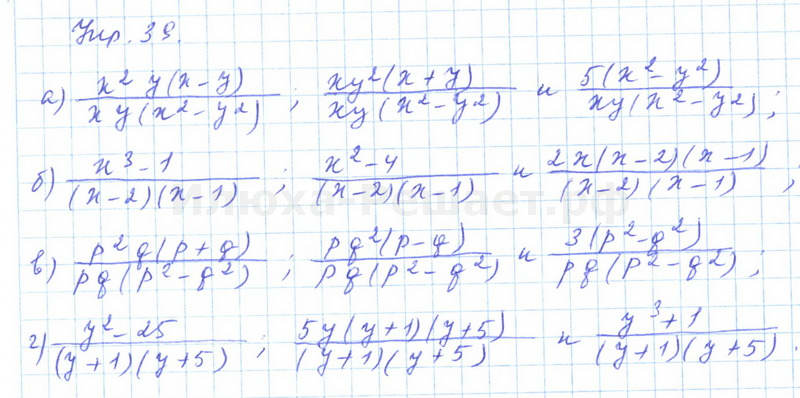 Упр. 39.
а) x² y(x-y) / xy(x²-y²) ; xy²(x+y) / xy(x²-y²) и 5(x²-y²) / xy(x²-y²) ;
б) x³-1 / (x-2)(x-1) ; x²-4 / (x-2)(x-1) и 2x(x-2)(x-1) / (x-2)(x-1) ;
в) p²q(p+q) / pq(p²-q²) ; pq²(p-q) / pq(p²-q²) и 3(p²-q²) / pq(p²-q²) ;
г) y²-25 / (y+1)(y+5) ; 5y(y+1)(y+5) / (y+1)(y+5) и y³+1 / (y+1)(y+5) .